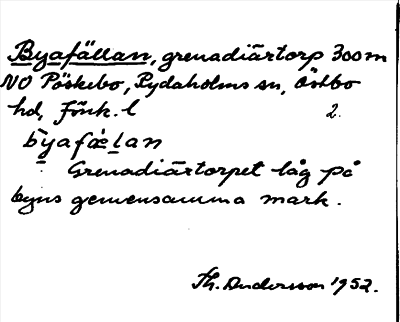 Byafällan, grenadiärtorp 300 m
NO Pöskebo, Rydaholms sn, Östbo
hd, Jönk. l 2.
by̱afæ̀ḻan
Grenadiärtorpet låg på
byns gemensamma mark.
Th. Andersson 1952.